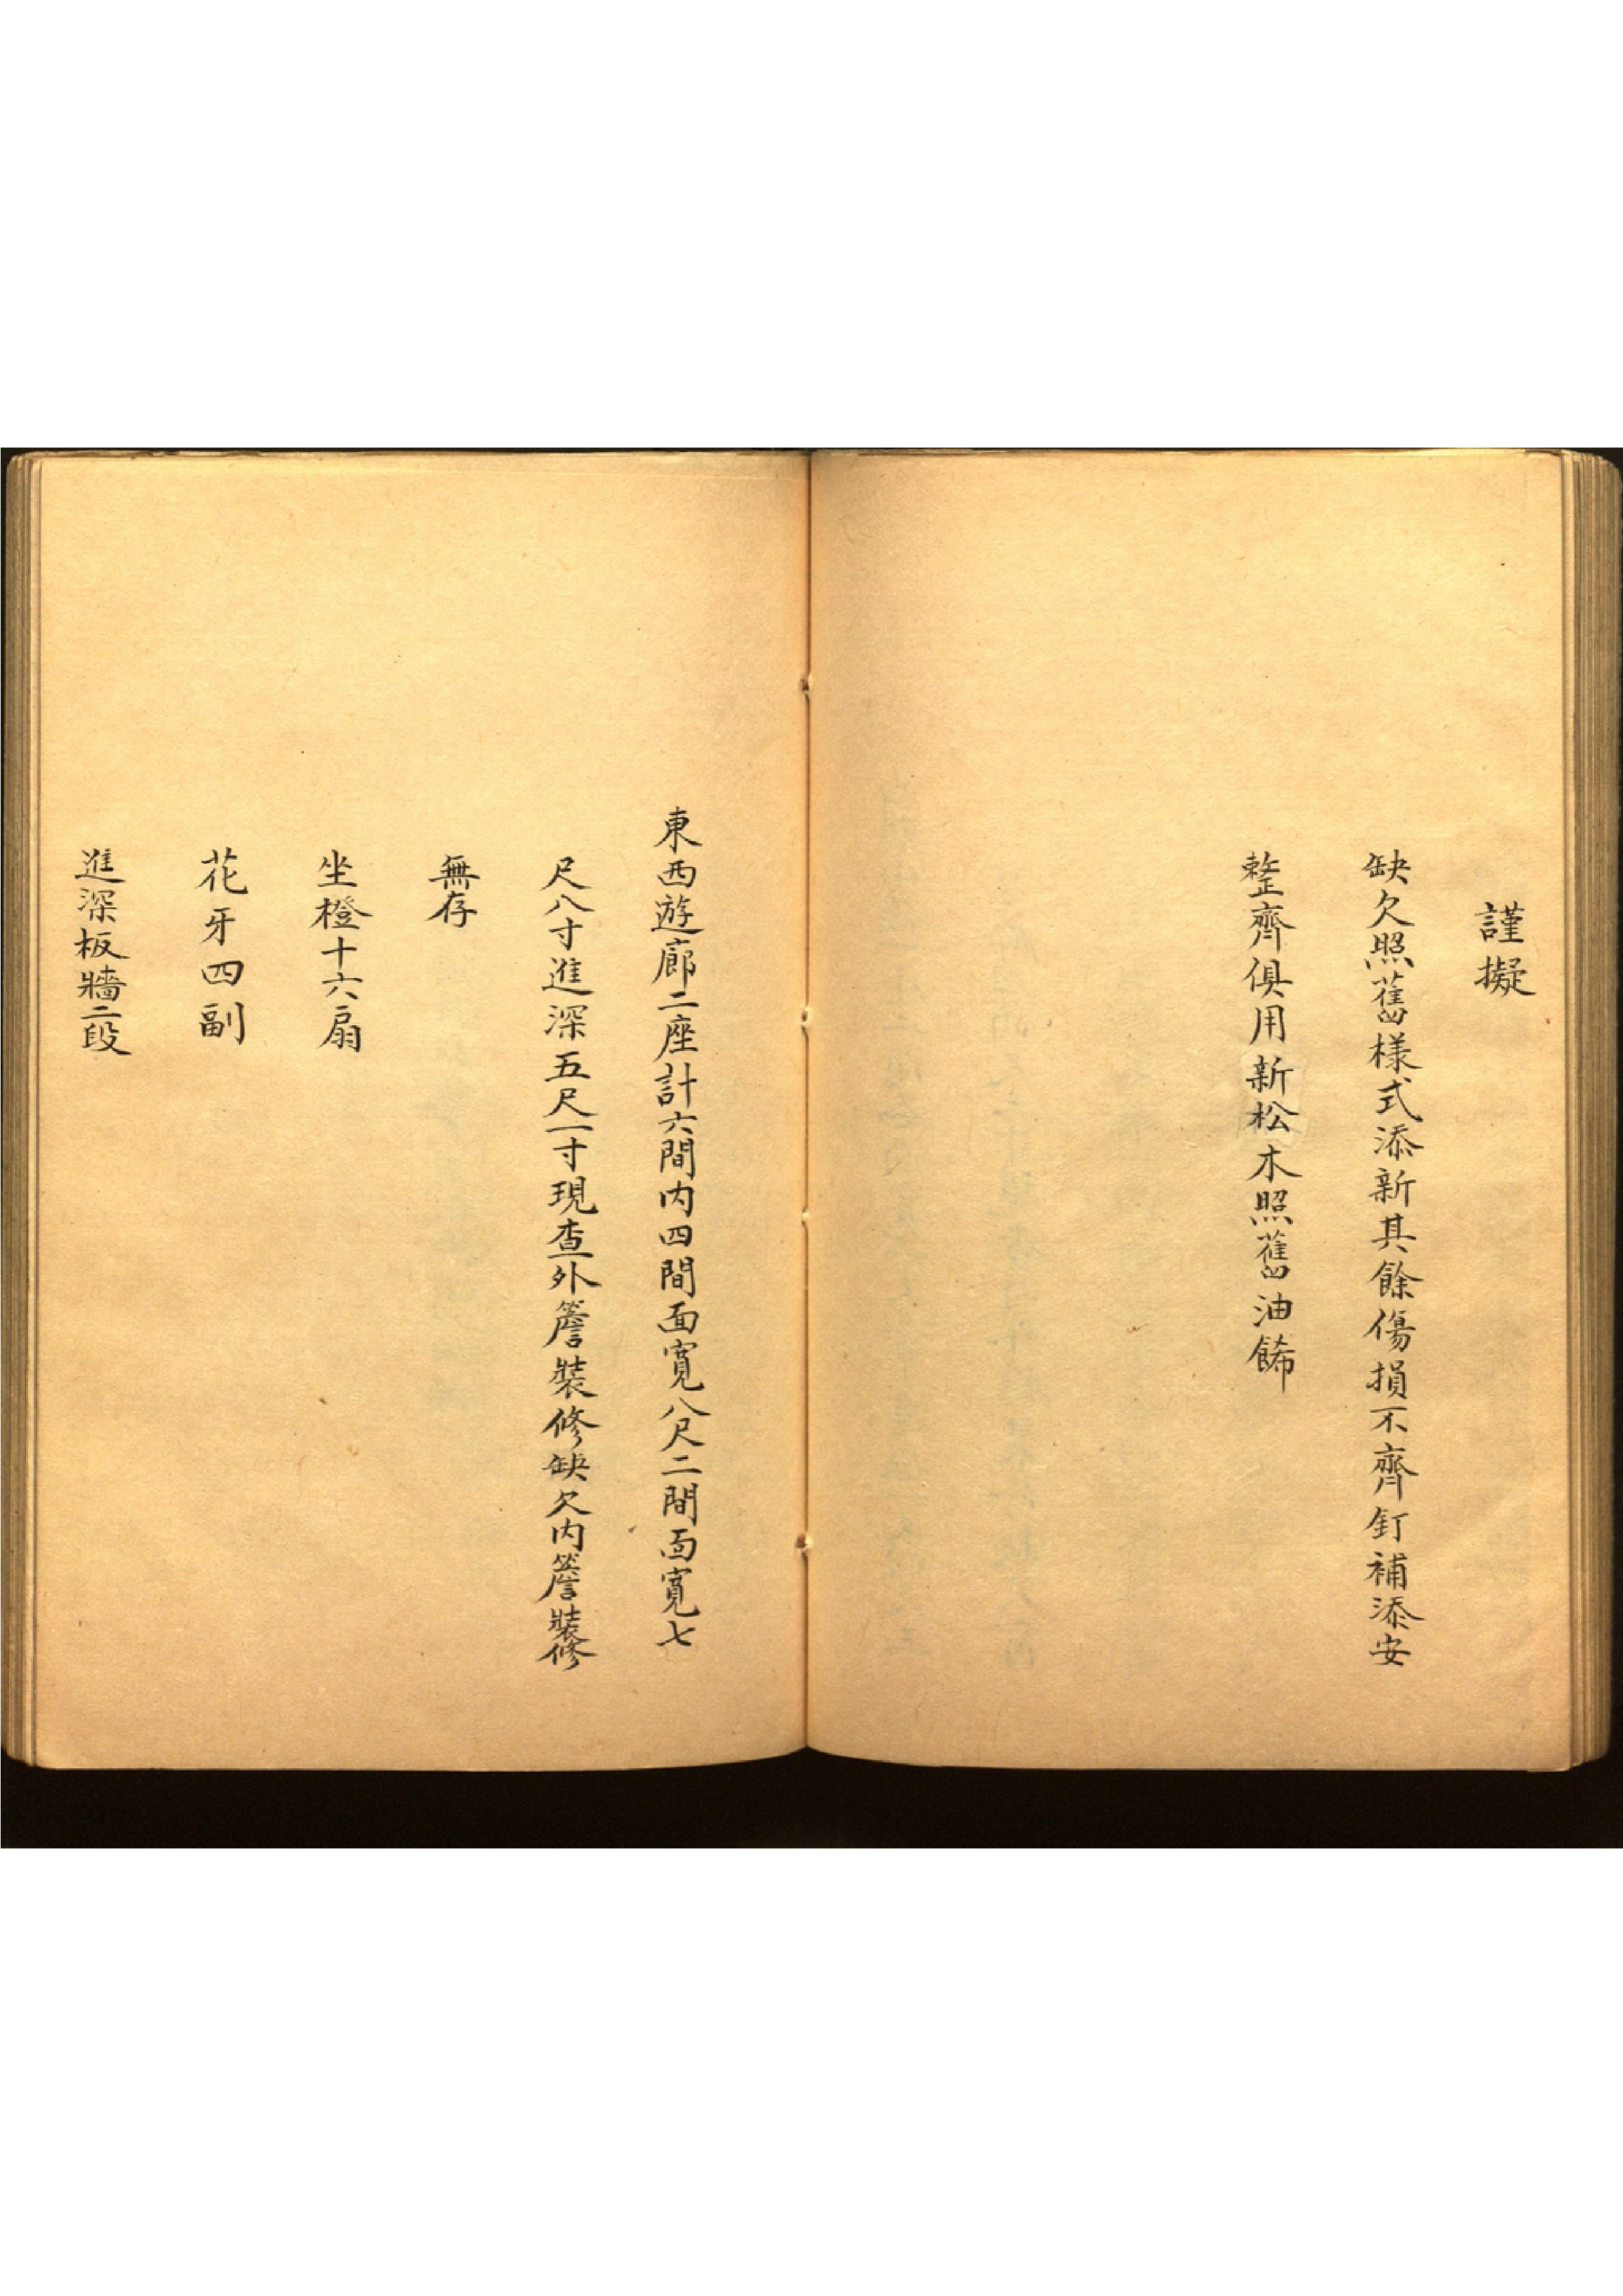 謹擬
缺欠照舊樣式添新其餘傷損不齊釘補添安
整齊俱用新松木照舊油餙
東西遊廊二座計六間内四間面寬八尺二間面寬七
尺八寸進深五尺一寸現查外簷裝修缺欠内簷裝修
無存
坐櫈十六扇
花牙四副
進深板牆二段